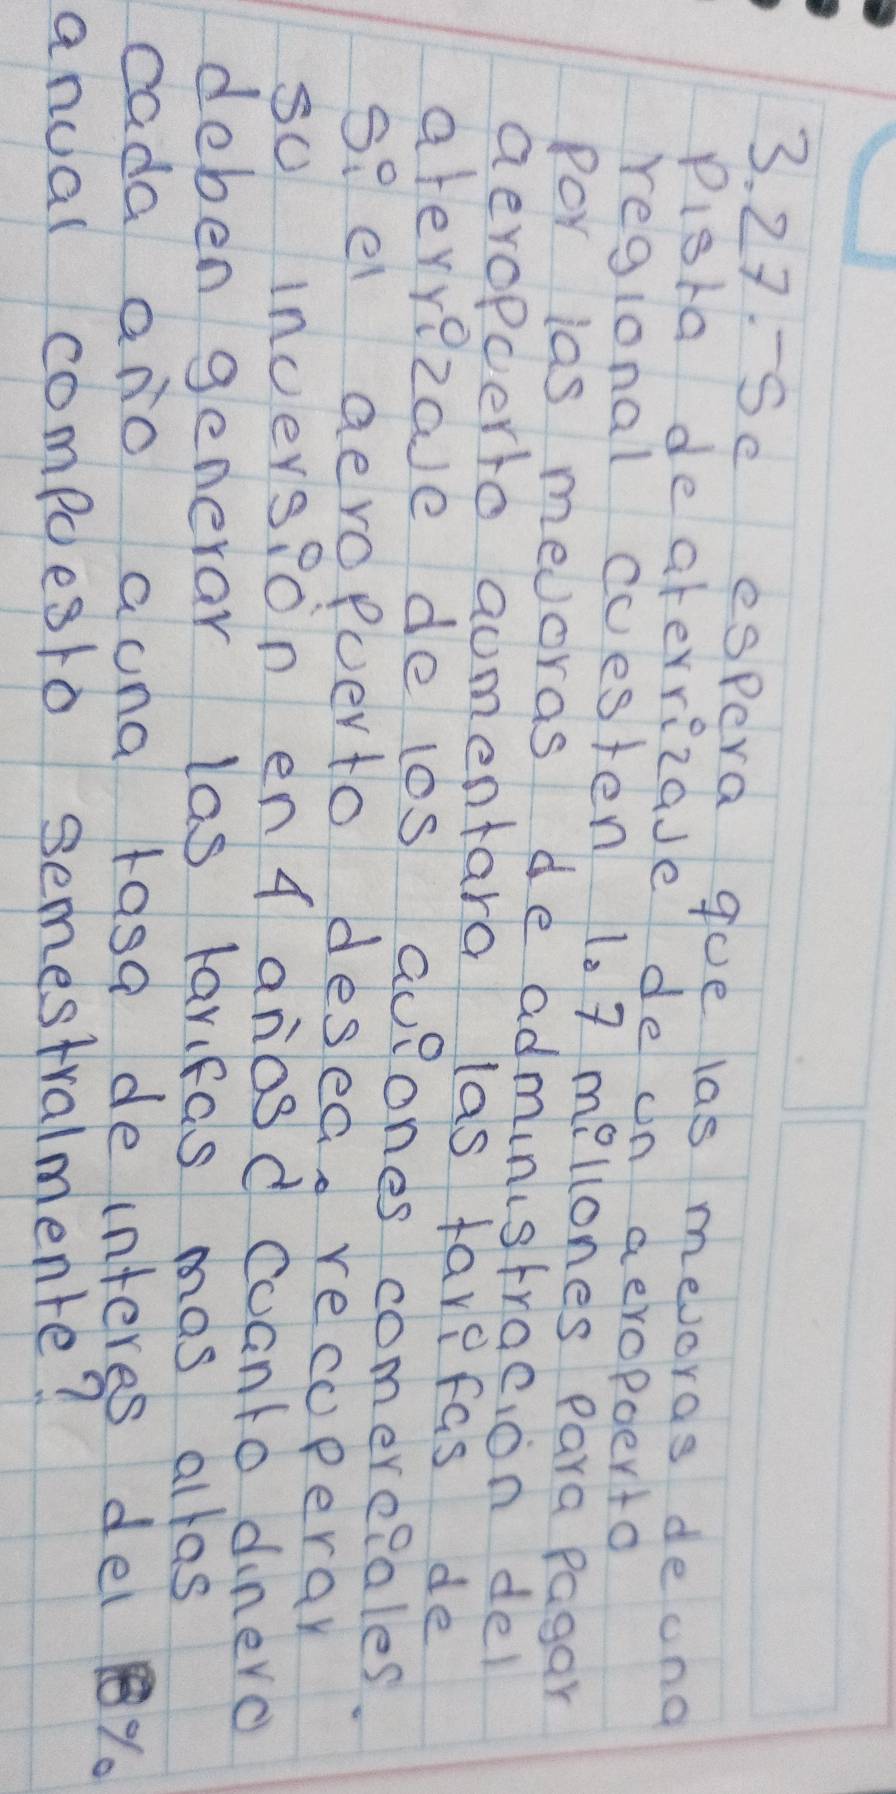 3.27.-Se espera que las mejoras de una
pista de aterrizaje de un aeropoerto
regional cuesten 1.7 millones para pagar
por las mejoras de administración del
aeropuerto aumentara las tarifas de
aterrizaje de los aviones comerciales.
Si el aeropuerto desea. recuperar
su inversión en 4 años ¿ cuanto dinero
deben generar las tarifas mas altas
cada año auna tasa de interes del 8%
anual compuesto semestralmente?